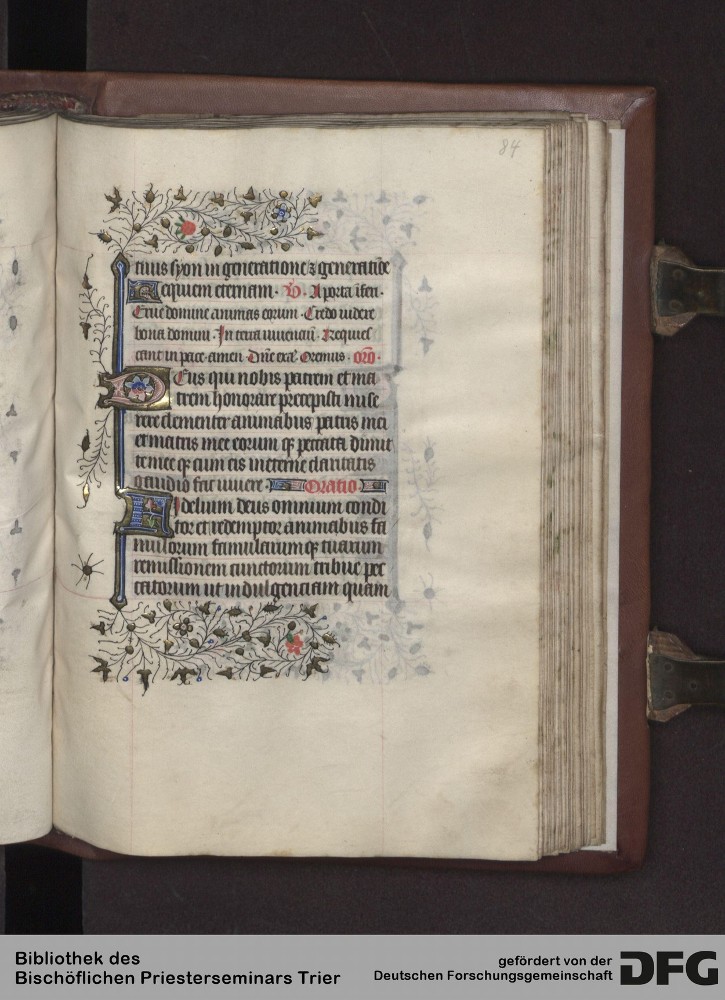 84
tuus syon in generatione ⁊ generatiōe
Requiem eternam. V̄. A porta īferi.
Erue domine animas eorum. Credo uidere
bona domini. In terra uiuenciū. Requies
cant in pace amen. Dn̄e exa. Oremus. or̄o.
Deus qui nobis patrem et ma
trem honorare precepisti mise
rere clementer animabus patris mei
et matris mee eorum qꝫ peccata dimit
te mee qꝫ cum eis in eterne claritatis
gaudio fac uiuere. Oratio.
Fidelium deus omnium condi
tor et redemptor animabus fa
mulorum famularum qꝫ tuarum
remissionem cunctorum tribue pec
catorum ut indulgenciam quam
Bibliothek des
Bischöflichen Priesterseminars Trier
gefördert von der
Deutschen Forschungsgemeinschaft
DFG